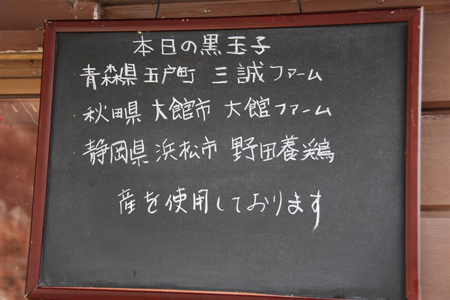 本日の黒玉子
青森県 五戸町 三誠ファーム
・秋田県 大館市 大館ファーム
・静岡県 浜松市 野田養鶏
産を使用しております